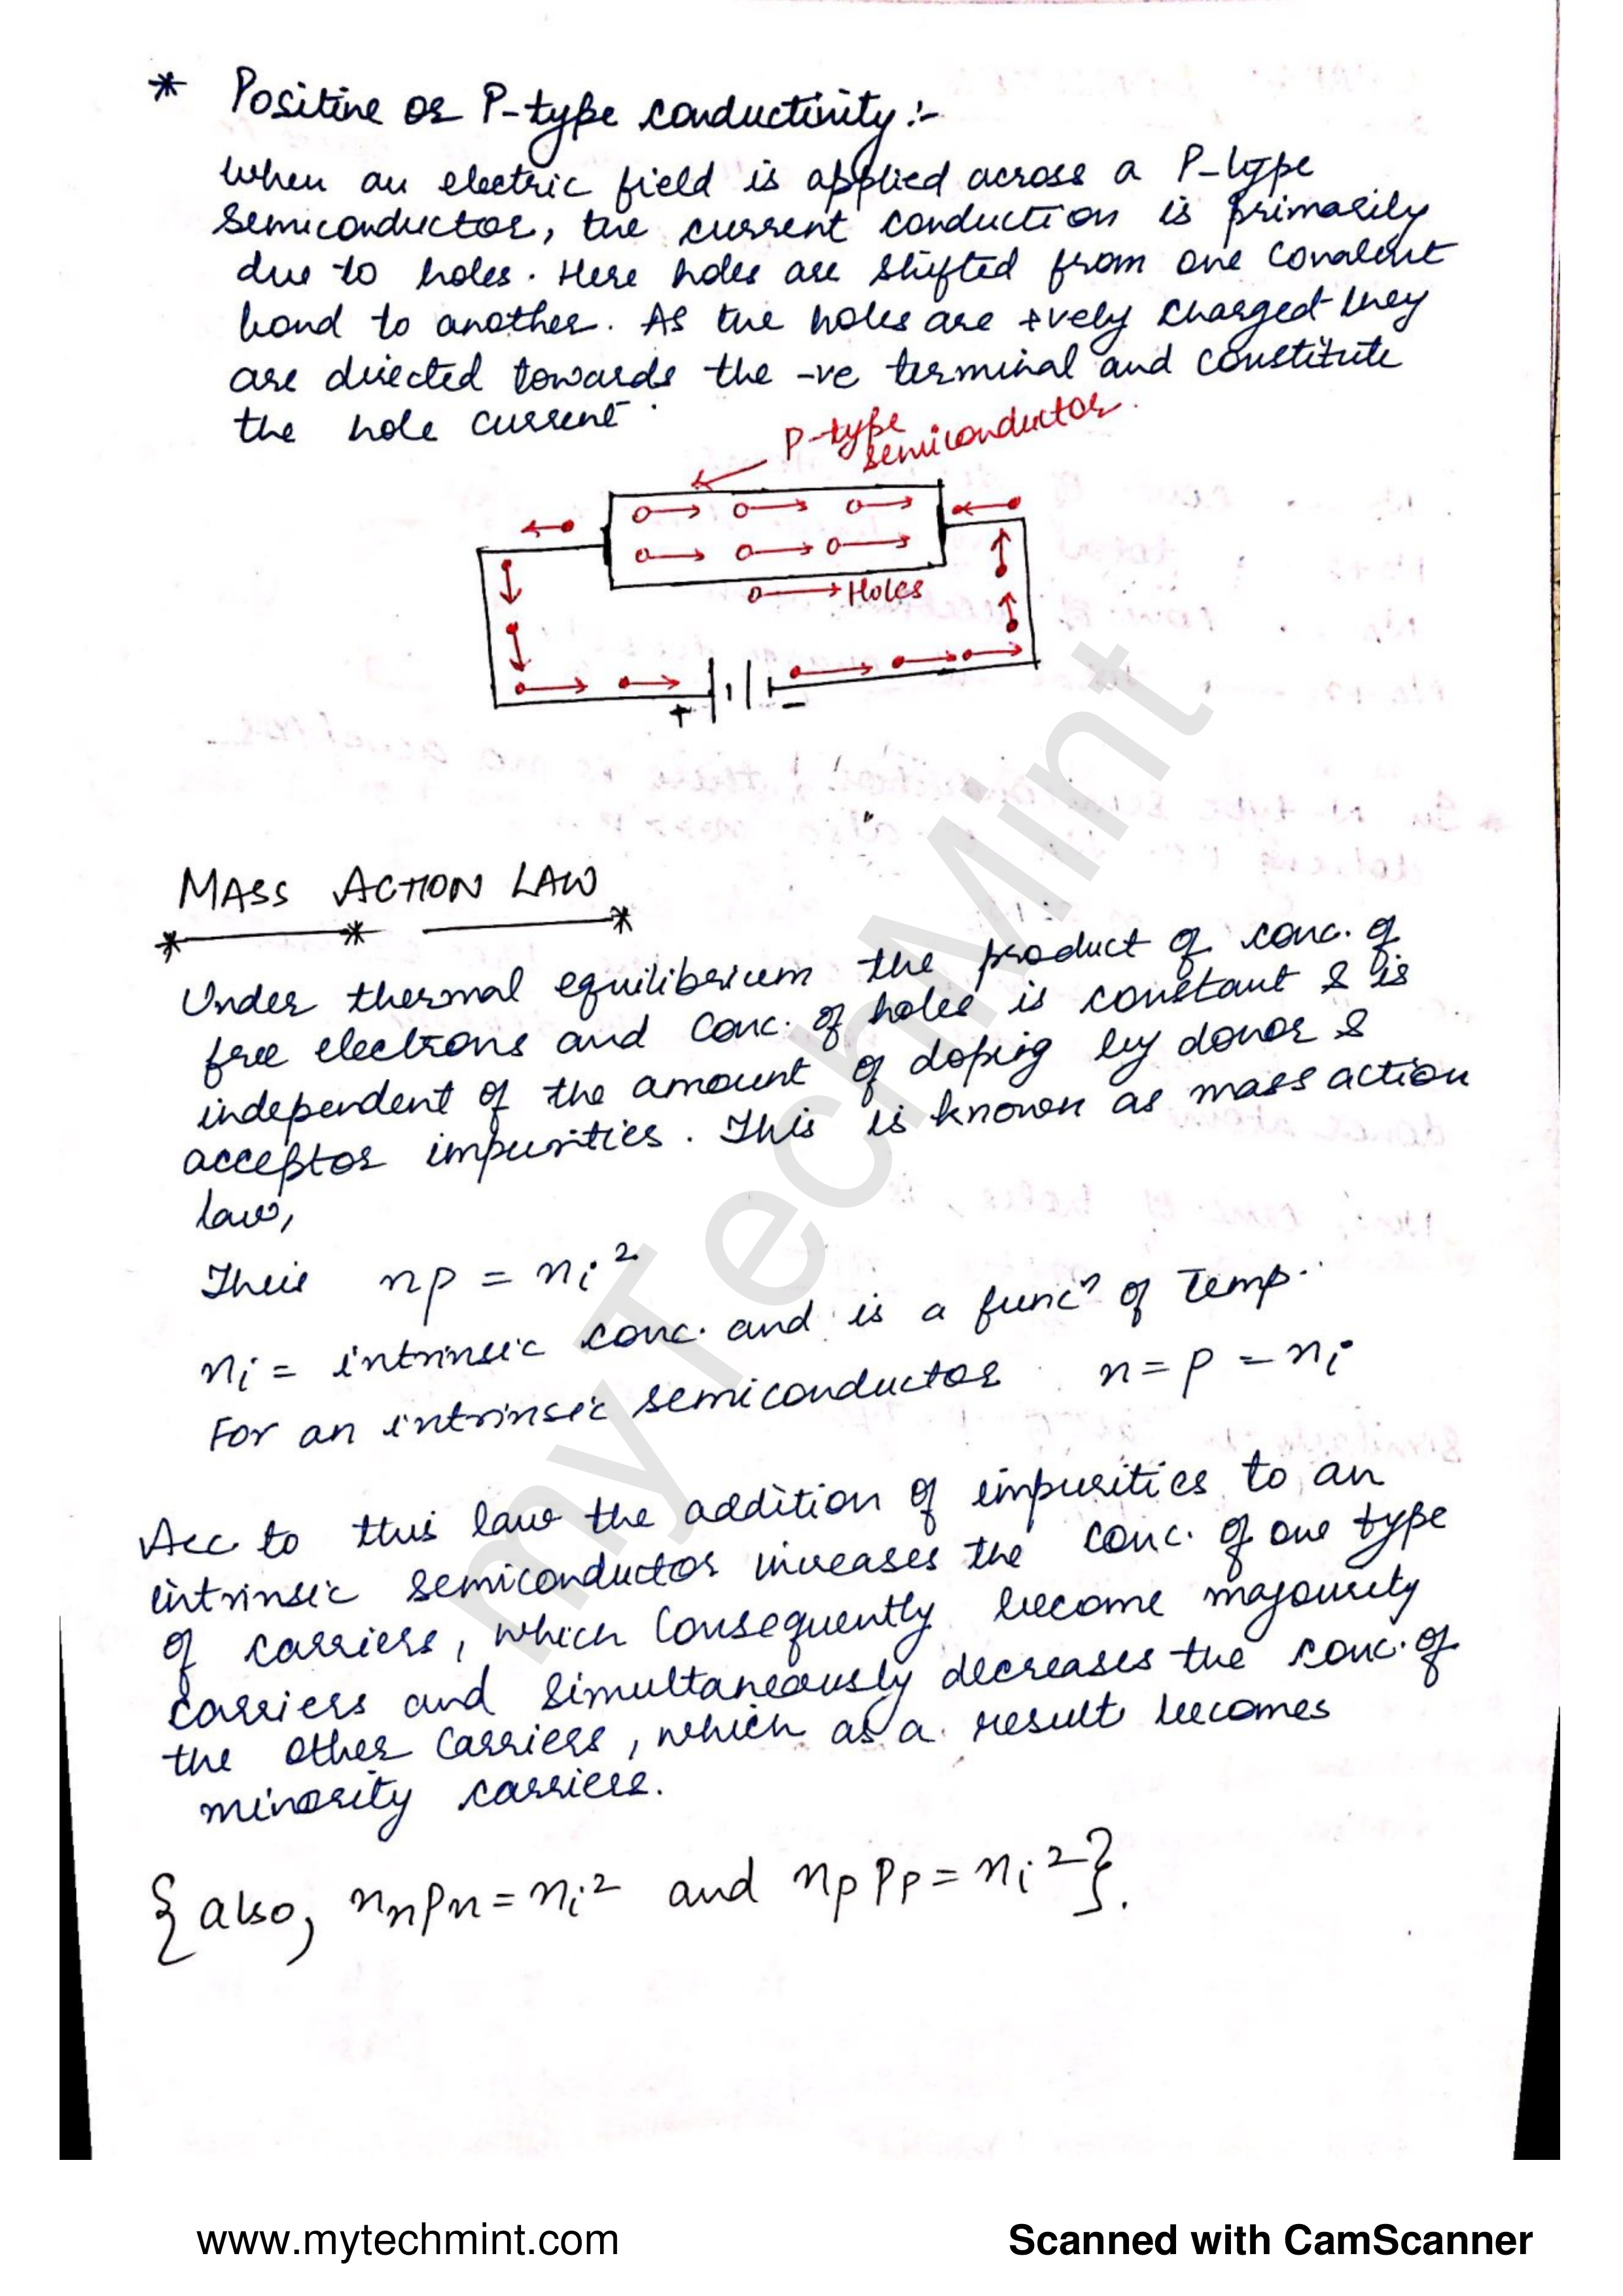 * Positive or P-type conductivity :-
When an electric field is applied across a P-type
semiconductor, the current conduction is primarily
due to holes. Here holes are shifted from one covalent
bond to another. As the holes are +vely charged they
are directed towards the -ve terminal and constitute
the hole current.
P-type
semiconductor.
Holes
+ -
MASS ACTION LAW
Under thermal equilibrium the product of conc. of
free electrons and conc. of holes is constant & is
independent of the amount of doping by donor &
acceptor impurities. This is known as mass action
law,
Thus np = nᵢ²
nᵢ = intrinsic conc. and is a funcⁿ of Temp.
For an intrinsic semiconductor n = p = nᵢ
Acc. to this law the addition of impurities to an
intrinsic semiconductor increases the conc. of one type
of carriers, which consequently become majourity
carriers and simultaneously decreases the conc. of
the other carriers, which as a result becomes
minority carriers.
{also, nₙpₙ = nᵢ² and nₚpₚ = nᵢ²}.
myTechMint
www.mytechmint.com
Scanned with CamScanner